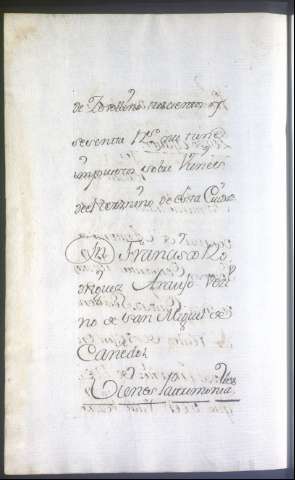 de Zorellana trescientos y
sesenta Rs. que tiene
impuestos sobre Vienes
del termino de esta Ciudad
Francisco Ro
driguez Araujo Vezi
no de San Miguel de
Canedo.
Vienes Patrimoniales